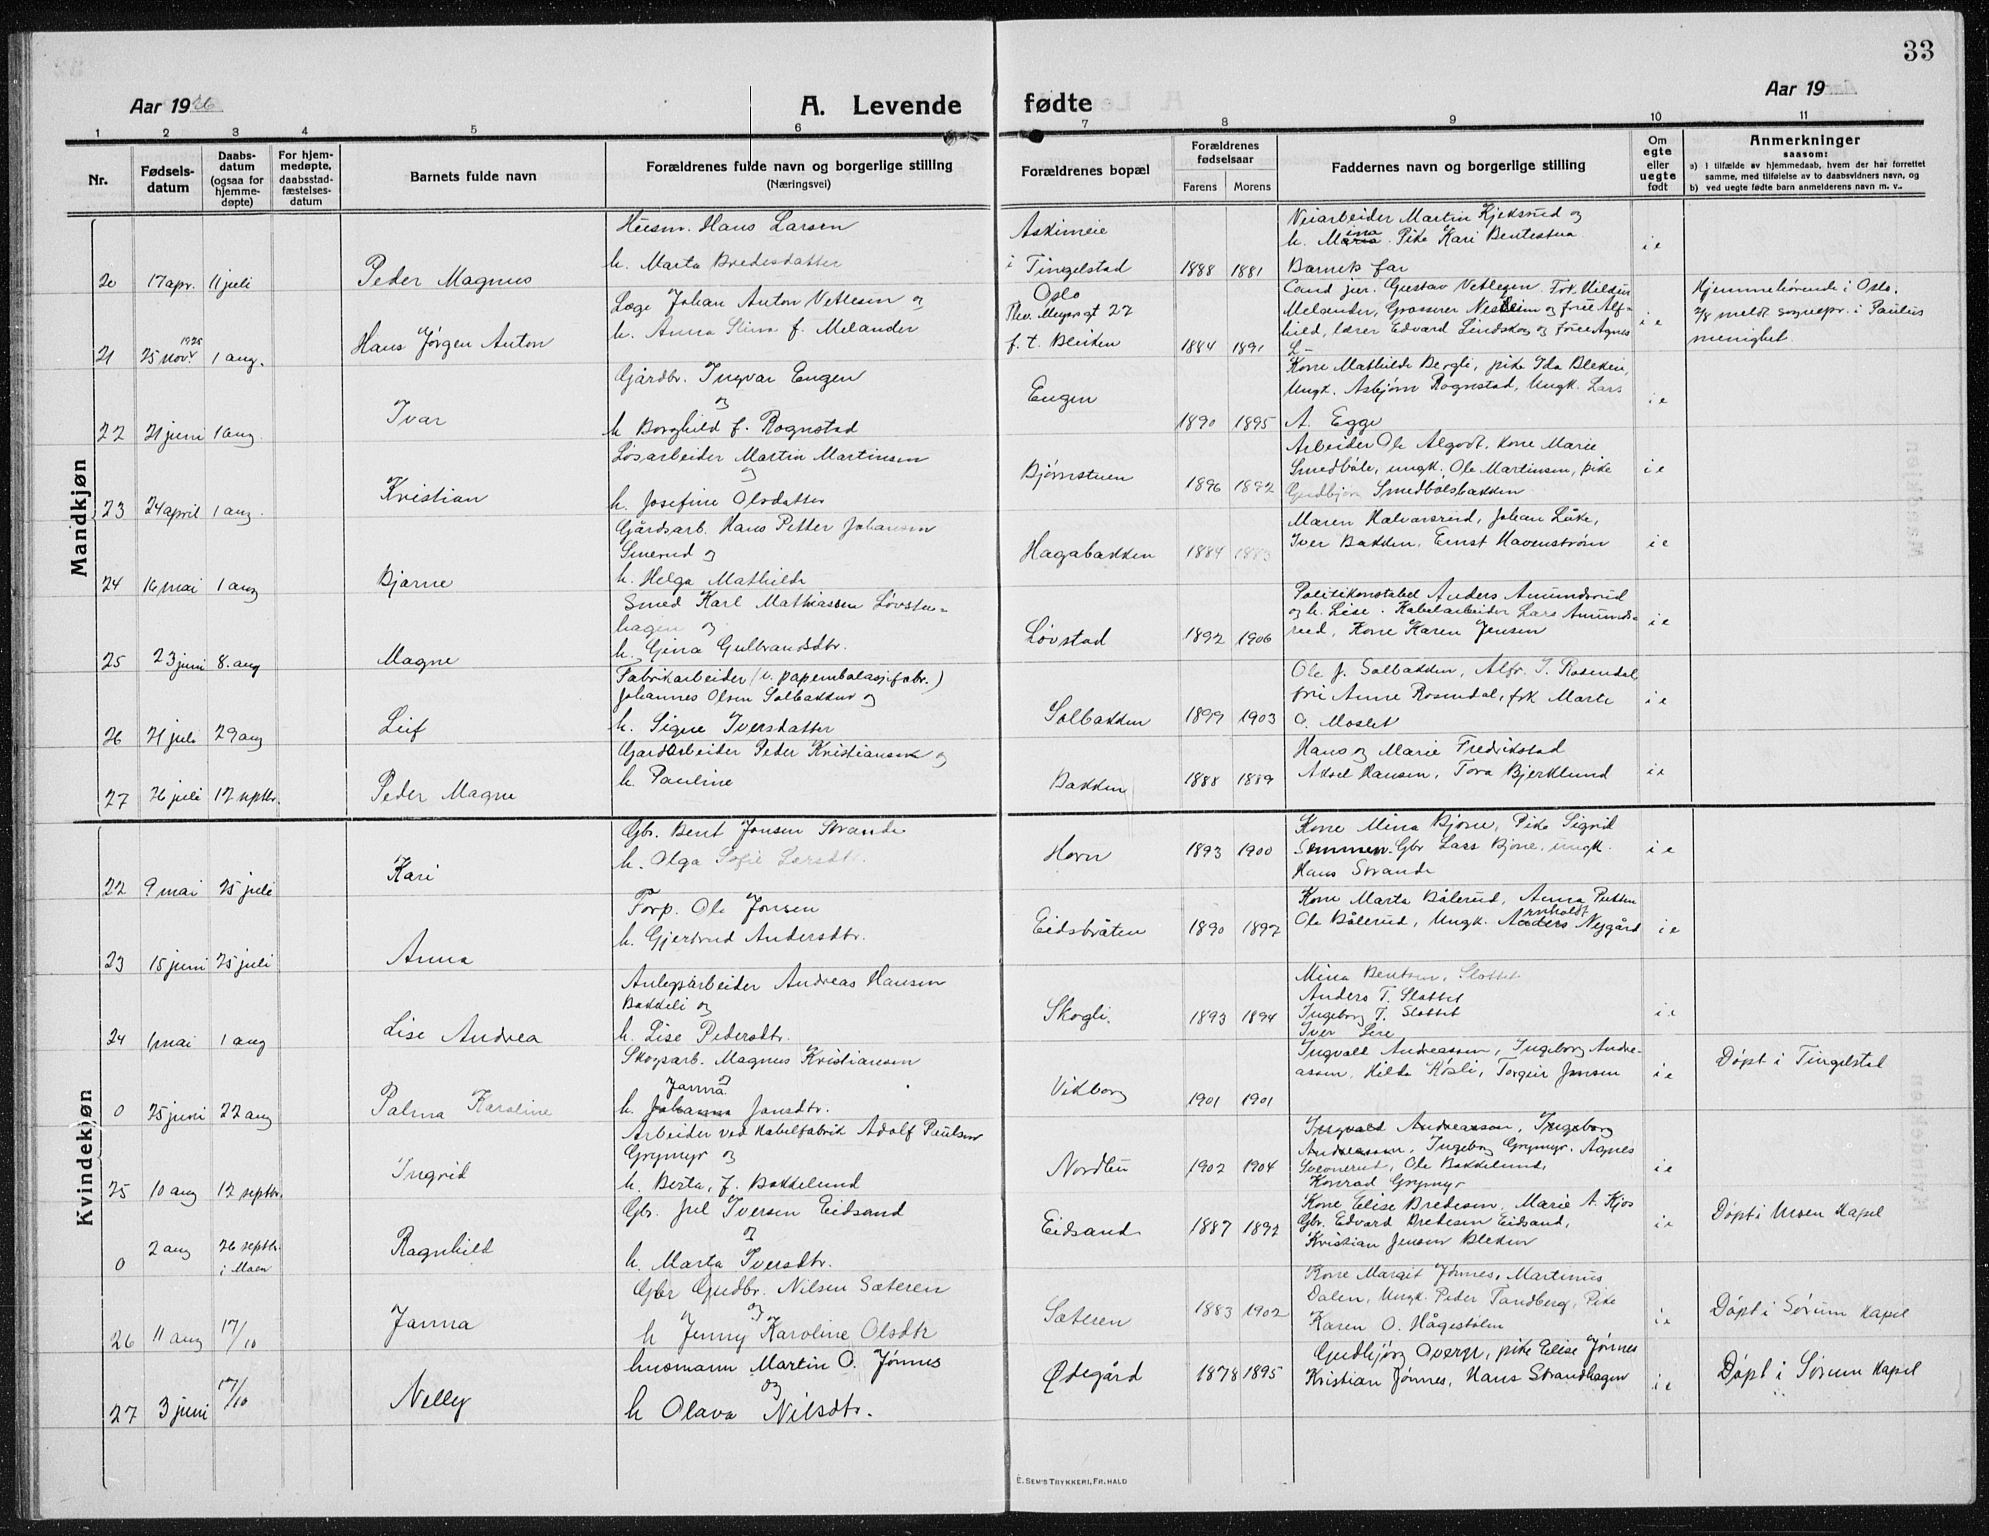 33
Aar 1926
A. Levende fødte
Aar 19
1 2 3 4 5 6 7 8 9 10 11
Nr.
Fødsels-
datum
Daabs-
datum
(ogsaa for
hjemme-
døpte)
For hjem-
medøpte,
daabsstad-
fæstelses-
datum
Barnets fulde navn
Forældrenes fulde navn og borgerlige stilling
(Næringsvei)
Forældrenes bopæl
Forældrenes
fødselsaar
Farens Morens
Faddernes navn og borgerlige stilling
Om
egte
eller
uegte
født
Anmerkninger
saasom:
a) i tilfælde av hjemmedaab, hvem der har forrettet
samme, med tilføielse av to daabsvidners navn, og
b) ved uegte fødte barn anmelderens navn m. v..
Mandkjøn
Husm. Hans Larsen
h. Marta Bredesdatter
20 17 apr. 11 juli Peder Magnus
Askimeie
i Tingelstad 1888 1881
Veiarbeider Martin Kjeksrud og
h. Maria ina. Pike Kari Bentestua
Barnets far
i e
Læge Johan Anton Vetlesen og
h. Anna Stina f. Melander
21 25 nov. 1925 1 aug. Hans Jørgen Anton
Oslo
Thv. Meyersgt 27
f. t. Bleiken 1884 1891
Cand jur. Gustav Vetlesen. Frk Hildur
Melander, Grosserer Nesheim og frue Alf-
hild, lærer Edvard Lindskog og frue Agnes
L-
i e
Hjemmehørende i Oslo.
2/8 meldt sognepr. i Paulus
menighet.
Gårdbr. Ingvar Engen
og
h Borghild f. Rognstad
22 21 juni 1 aug. Ivar
Engen 1890 1895
Kone Mathilde Bergli, pike Ida Bleken,
Ungk. Asbjørn Rognstad, Ungk. Lars
A. Egge
i e
Løsarbeider Martin Martinsen
og
h. Josefine Olsdatter
23 24 april 1 aug. Kristian
Bjørnstuen 1896 1892
Arbeider Ole Algodt. Kone Marie
Smedbøle, ungk. Ole Martinsen, pike
Gudbjør Smedbølsbakken
i e
Gårdsarb. Hans Petter Johansen
Smerud og
h. Helga Mathilde
24 16 mai 1 aug Bjarne
Hagabakken 1884 1883
Maren Halvorsrud, Johan Luke,
Iver Bakken, Ernst Havenstrøm
i e
Smed Karl Mathiassen Løvsten-
hagen og
h. Gina Gulbrandsdtr.
25 23 juni 8. aug Magne
Løvstad 1892 1906
Politikonstabel Anders Amundsrud
og h. Lise. Kabelarbeider Lars Amunds-
rud, Kone Karen Jensen
i e
Fabrikarbeider (v. papembalasjefabr.)
Johannes Olsen Solbakken og
h. Signe Iversdatter
26 21 juli 29 aug Leif
Solbakken 1899 1903
Ole J. Solbakken, Alfr. T. Rosendal
fru Anne Rosendal, frk Marte
O. Moslet
i e
Gardarbeider Peder Kristiansen og
h. Pauline
27 26 juli 12 septbr. Peder Magne
Bakken 1888 1889
Hans og Marie Fredrikstad
Aksel Hansen, Tora Bjerklund
i e
Kvindekjøn
Gbr. Bent Jonsen Strande
h. Olga Sofie Larsdtr.
22 9 mai 25 juli Kari
Horn 1893 1900
Kone Mina Bjone, Pike Sigrid
Sommen. Gbr Lars Bjone, ungk.
Hans Strande
i e
Forp. Ole Jonsen
h. Gjertrud Andersdtr.
23 15 juni 25 juli Anna
Eidsbråten 1890 1892
Kone Marta Bålerud, Anna Putten
Ole Bålerud, Ungk. Anders rnholdt Nygård
i e
Anlegsarbeider Andreas Hansen
Bakkeli og
h. Lise Pedersdtr.
24 1 mai 1 aug Lise Andrea
Skogli. 1893 1894
Mina Bentsen, Slottet
Anders T. Slottet
Ingeborg T. Slottet
Iver Lere
i e
Skogsarb. Magnus Kristiansen
og
h. Johanna Janna Jonsdtr.
0 25 juni 22 aug Palma Karoline
Vikborg 1901 1901
Ingvald Andreassen, Ingeborg Andre-
assen, Hilda Høsli, Torgeir Jensen
i e
Døpt i Tingelstad
Arbeider ved Kabelfabrik Adolf Paulsen
Grymyr og
h. Berta, f. Bakkelund
25 10 aug 12 septbr. Ingrid
Nordlu 1902 1904
Ingvald Andreassen, Ingeborg
Andreassen, Ingeborg Grymyr. Agnes
Svennerud, Ole Bakkelund,
Konrad Grymyr
i e
Gbr. Jul Iversen Eidsand
og
h. Marta Iversdtr.
0 2 aug 26 septbr. i Moen Ragnhild
Eidsand 1887 1892
Kone Elise Bredesen, Marie A. Kjos
Gbr. Edvard Bredesen Eidsand,
Kristian Jensen Bleken
i e
Døpt i Moen Kapel
Gbr Gudbr. Nilsen Sæteren
og
h Jenny Karoline Olsdtr
26 11 aug 17/10 Janna
Sæteren 1883 1902
Kone Margit Jønnes, Martinus
Dalen, Ungk. Peder Tandberg, Pike
Karen O. Hågestølen
i e
Døpt i Sørum Kapel
husmann Martin O. Jønnes
og
h Olava Nilsdtr.
27 3 juni 17/10 Nelly
Ødegård 1878 1895
Gudbjørg Overgr, pike Elise Jønnes
Kristian Jønnes, Hans Strandhagen
i e
Døpt i Sørum Kapel
E. SEM'S TRYKKERI, FR. HALD